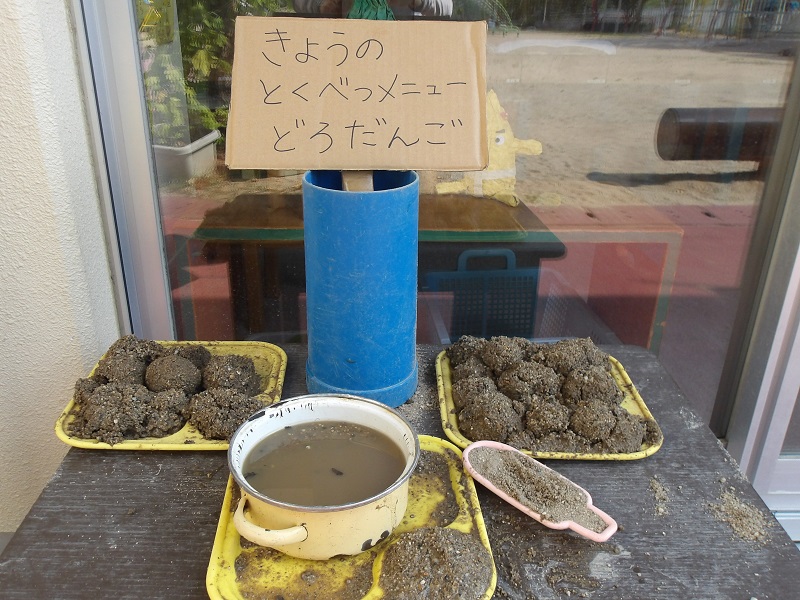 きょうの
とくべつメニュー
どろだんご